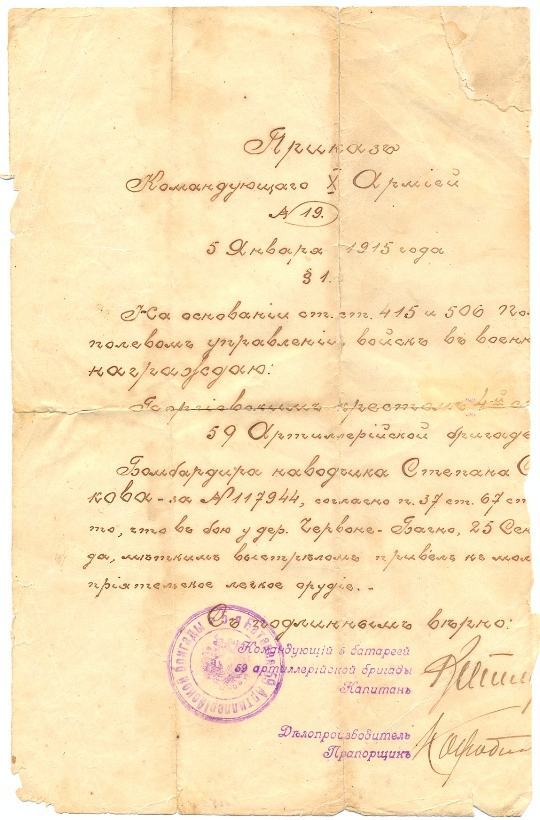 Приказъ
Командующаго X Арміей
№ 19.
5 Января 1915 года
§ 1.
На основаніи ст. ст. 415 и 506 По
полевомъ управленіи войскъ въ воен
награждаю:
Георгіевскимъ крестомъ 4-й с
59 Артиллерійской бригаде
Бомбардира наводчика Степана С
кова - за № 117944, согласно п. 37 ст. 67 ст
то, что въ бою у дер. Червоне-Багно, 25 Сен
да, мѣткимъ выстрѣломъ привелъ къ мол
пріятельское легкое орудіе. -
Съ подлиннымъ вѣрно:
Командующій 5 батареей
59 артиллерійской бригады
Капитанъ
Дѣлопроизводитель
Прапорщикъ